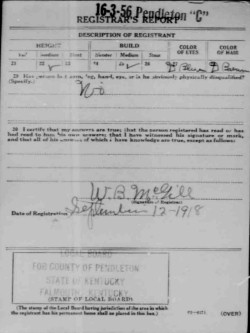 16-3-56 Pendleton "C"
REGISTRAR'S REPORT
DESCRIPTION OF REGISTRANT
HEIGHT BUILD COLOR OF EYES COLOR OF HAIR
Tall Medium Short Slender Medium Stout
21 22 23 24 25 26 27 28
29 Has person lost arm, leg, hand, eye, or is he obviously physically disqualified?
(Specify.)
No
30 I certify that my answers are true; that the person registered has read or has
had read to him his own answers; that I have witnessed his signature or mark,
and that all of his answers of which I have knowledge are true, except as follows:
W.B. McGill
(Signature of Registrar)
Date of Registration September 12-1918
LOCAL BOARD
FOR COUNTY OF PENDLETON
STATE OF KENTUCKY
FALMOUTH, KENTUCKY
(STAMP OF LOCAL BOARD)
(The stamp of the Local Board having jurisdiction of the area in which
the registrant has his permanent home shall be placed in this box.)
(OVER)